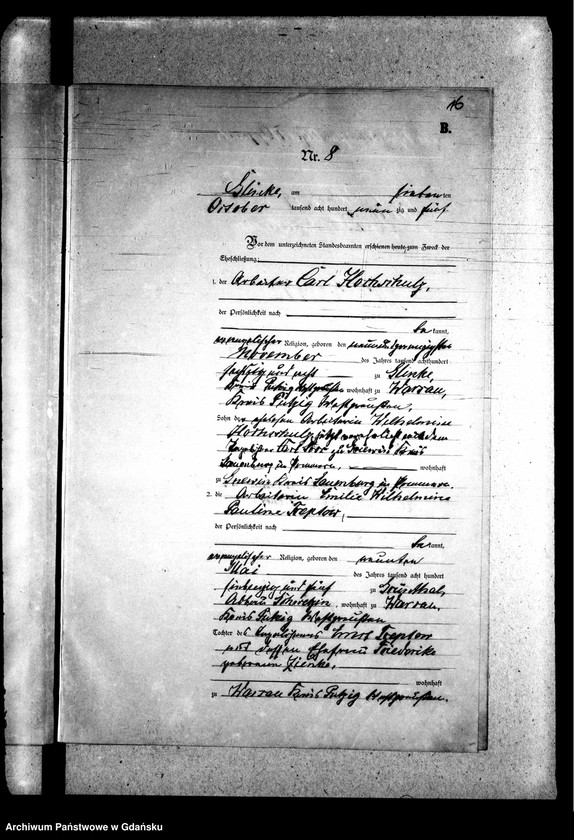 16
B.
Nr. 8
Slinke, am siebenten
October tausend acht hundert neunzig und fünf
Vor dem unterzeichneten Standesbeamten erschienen heute zum Zweck der
Eheschließung:
1. der Arbeiter Carl
der Persönlichkeit nach
be kannt,
evangelischer Religion, geboren den neunundzwanzigsten
November des Jahres tausend achthundert
sechzig und acht zu Slinke
Kreis Putzig Westpreußen wohnhaft zu Warrau,
Kreis Putzig Westpreußen,
Sohn der Arbeiterin Wilhelmine
jetzt verehelicht mit dem
Carl zu Kreis
Lauenburg in Pommern, wohnhaft
zu Kreis Lauenburg in Pommern.
2. die Arbeiterin Emilie Wilhelmine
Pauline Treptow,
der Persönlichkeit nach
be kannt,
evangelischer Religion, geboren den neunten
Mai des Jahres tausend acht hundert
siebenzig und fünf zu
, wohnhaft zu Warrau,
Kreis Putzig Westpreußen
Tochter des Ernst Treptow
und dessen Ehefrau Friederike
geborenen
wohnhaft
zu Warrau Kreis Putzig Westpreußen.
Archiwum Państwowe w Gdańsku